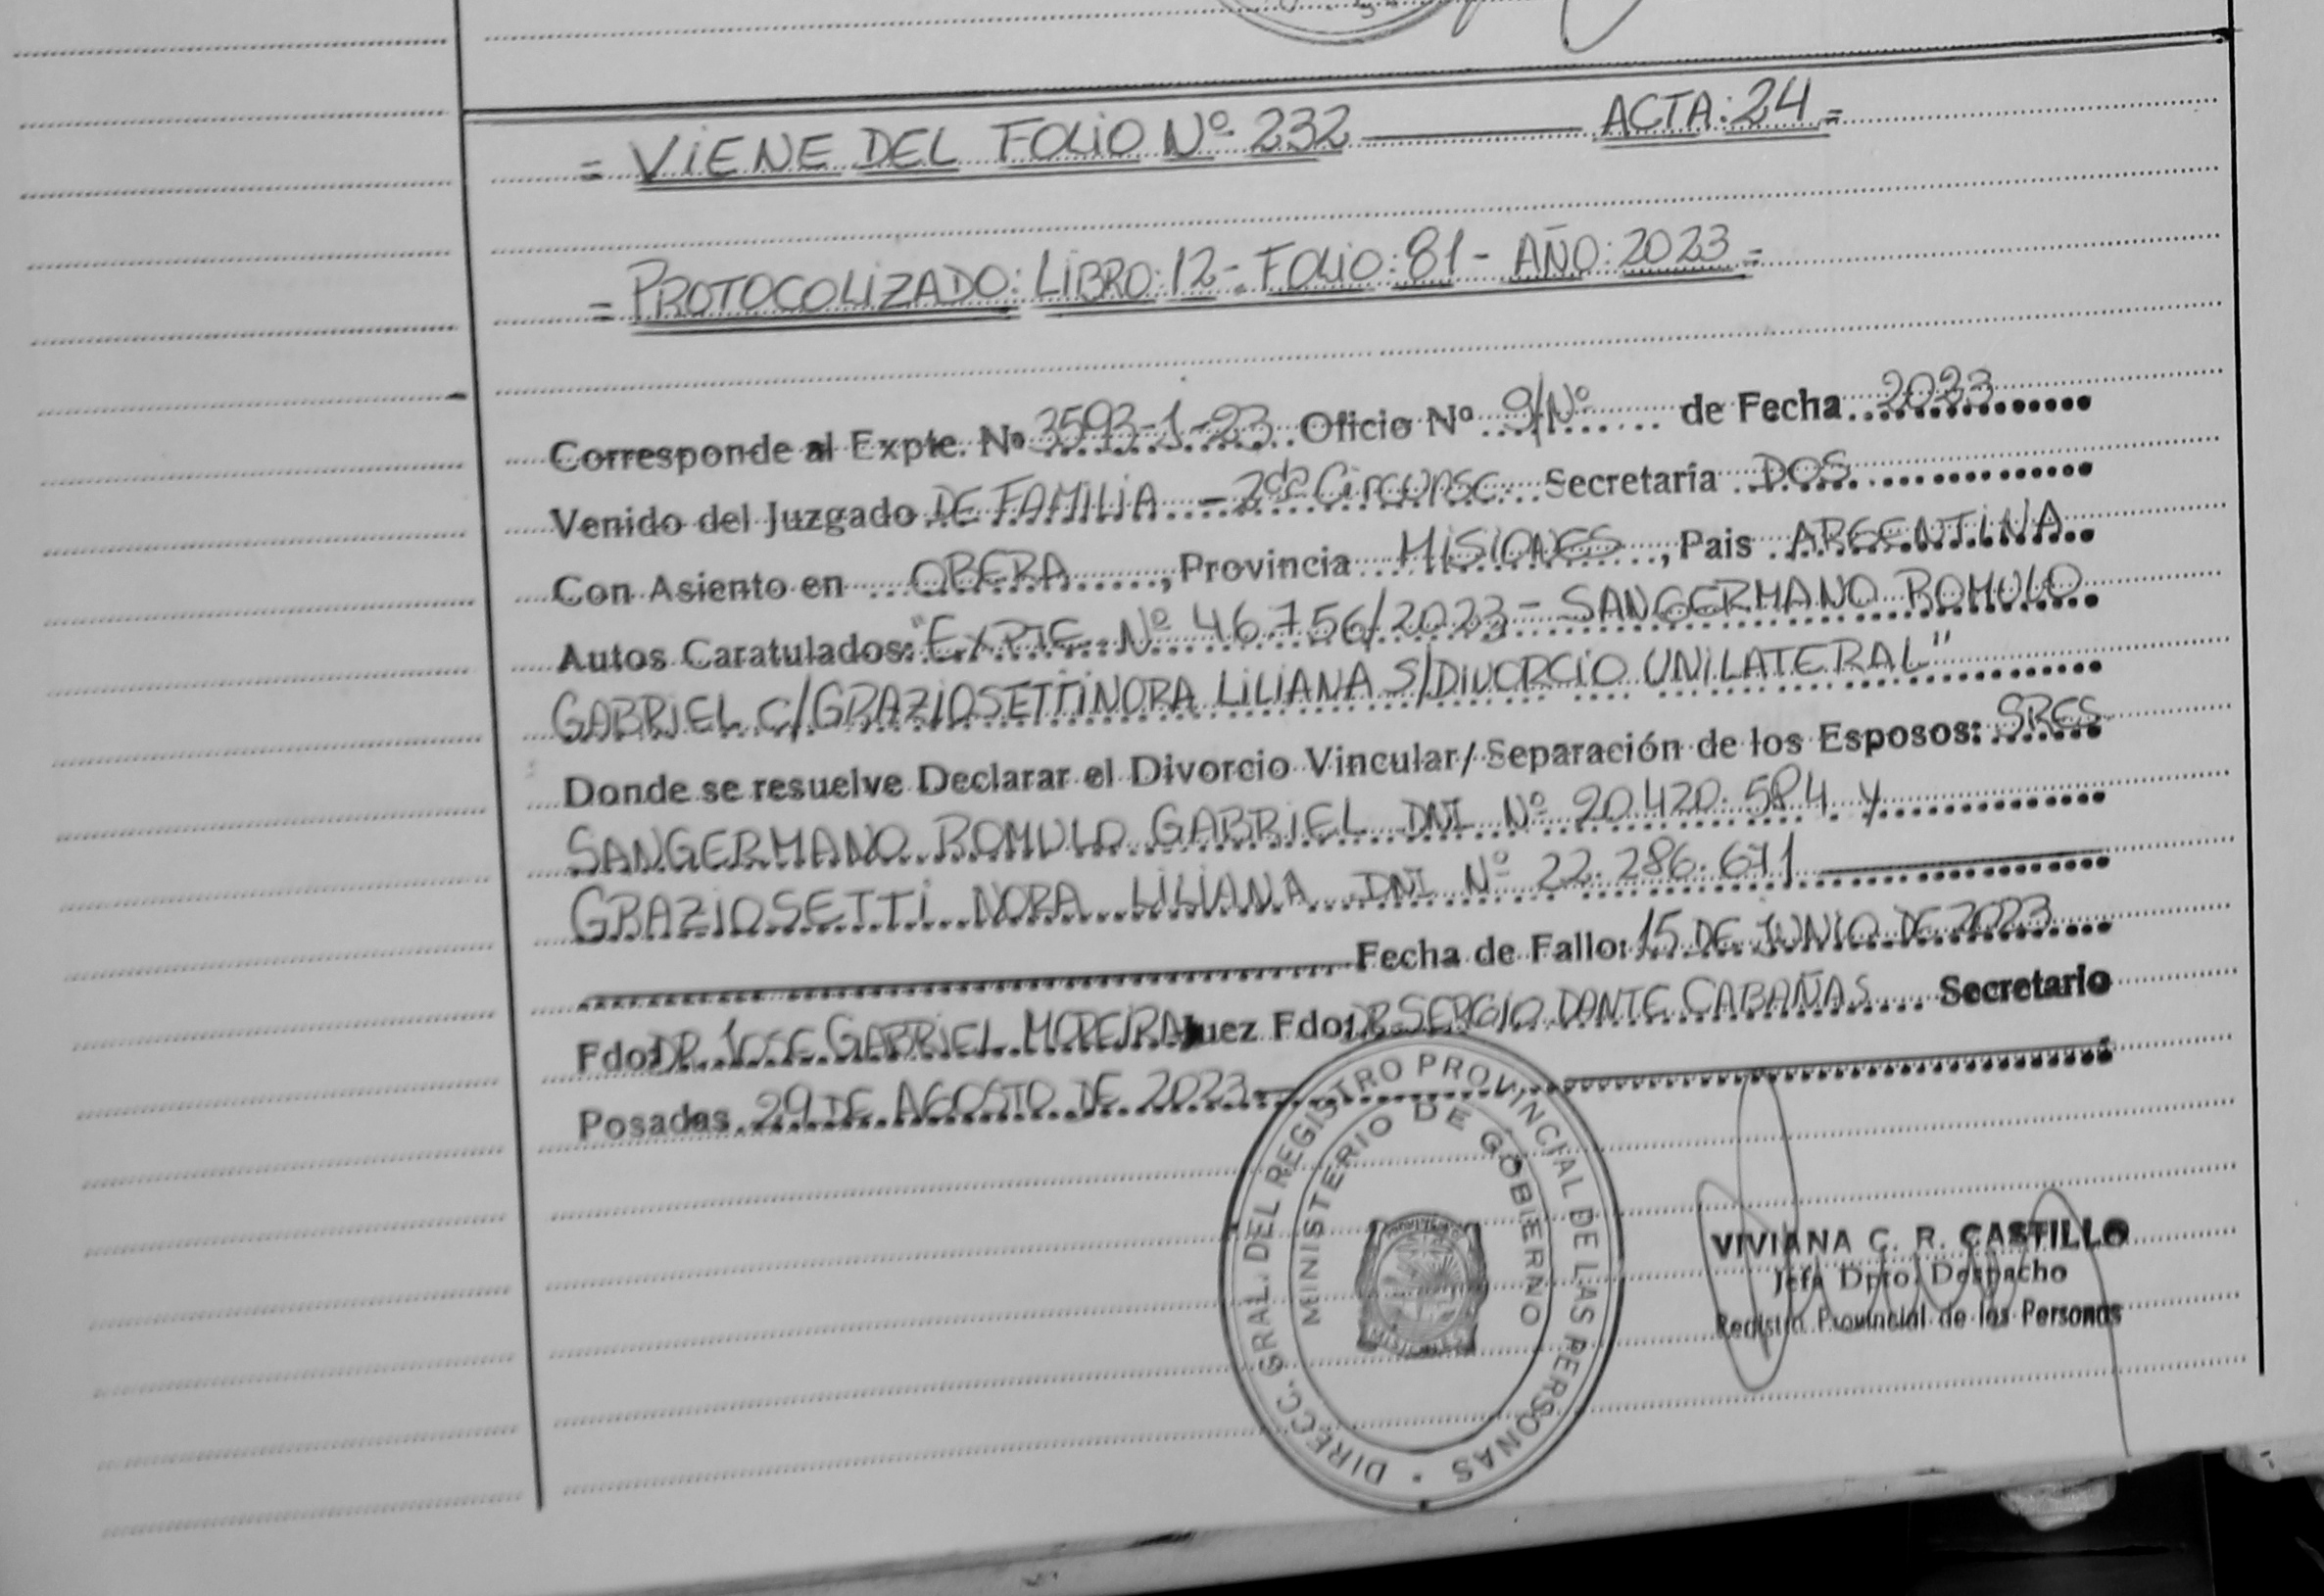 = VIENE DEL FOLIO Nº 232 ——— ACTA: 24 =
= PROTOCOLIZADO: LIBRO: 12 - FOLIO: 81 - AÑO: 2023 =
Corresponde al Expte. Nº 3593-1-23 Oficio Nº S/Nº de Fecha 2023
Venido del Juzgado DE FAMILIA - 2da Circunsc. Secretaría DOS
Con Asiento en OBERA, Provincia MISIONES, Pais ARGENTINA
Autos Caratulados: "EXPTE. Nº 46756/2023 - SANGERMANO ROMULO
GABRIEL C/GRAZIOSETTI NORA LILIANA S/DIVORCIO UNILATERAL"
Donde se resuelve Declarar el Divorcio Vincular/Separación de los Esposos: SRES
SANGERMANO ROMULO GABRIEL DNI Nº 20.420.584 y
GRAZIOSETTI NORA LILIANA DNI Nº 22.286.671
Fecha de Fallo: 15 DE JUNIO DE 2023
Fdo: DR JOSE GABRIEL MOREIRA Juez Fdo: DR SERGIO DANTE CABAÑAS Secretario
Posadas 29 DE AGOSTO DE 2023
DIRECC. GRAL. DEL REGISTRO PROVINCIAL DE LAS PERSONAS
MINISTERIO DE GOBIERNO
MISIONES
VIVIANA C. R. CASTILLO
Jefa Dpto. Despacho
Registro Provincial de las Personas